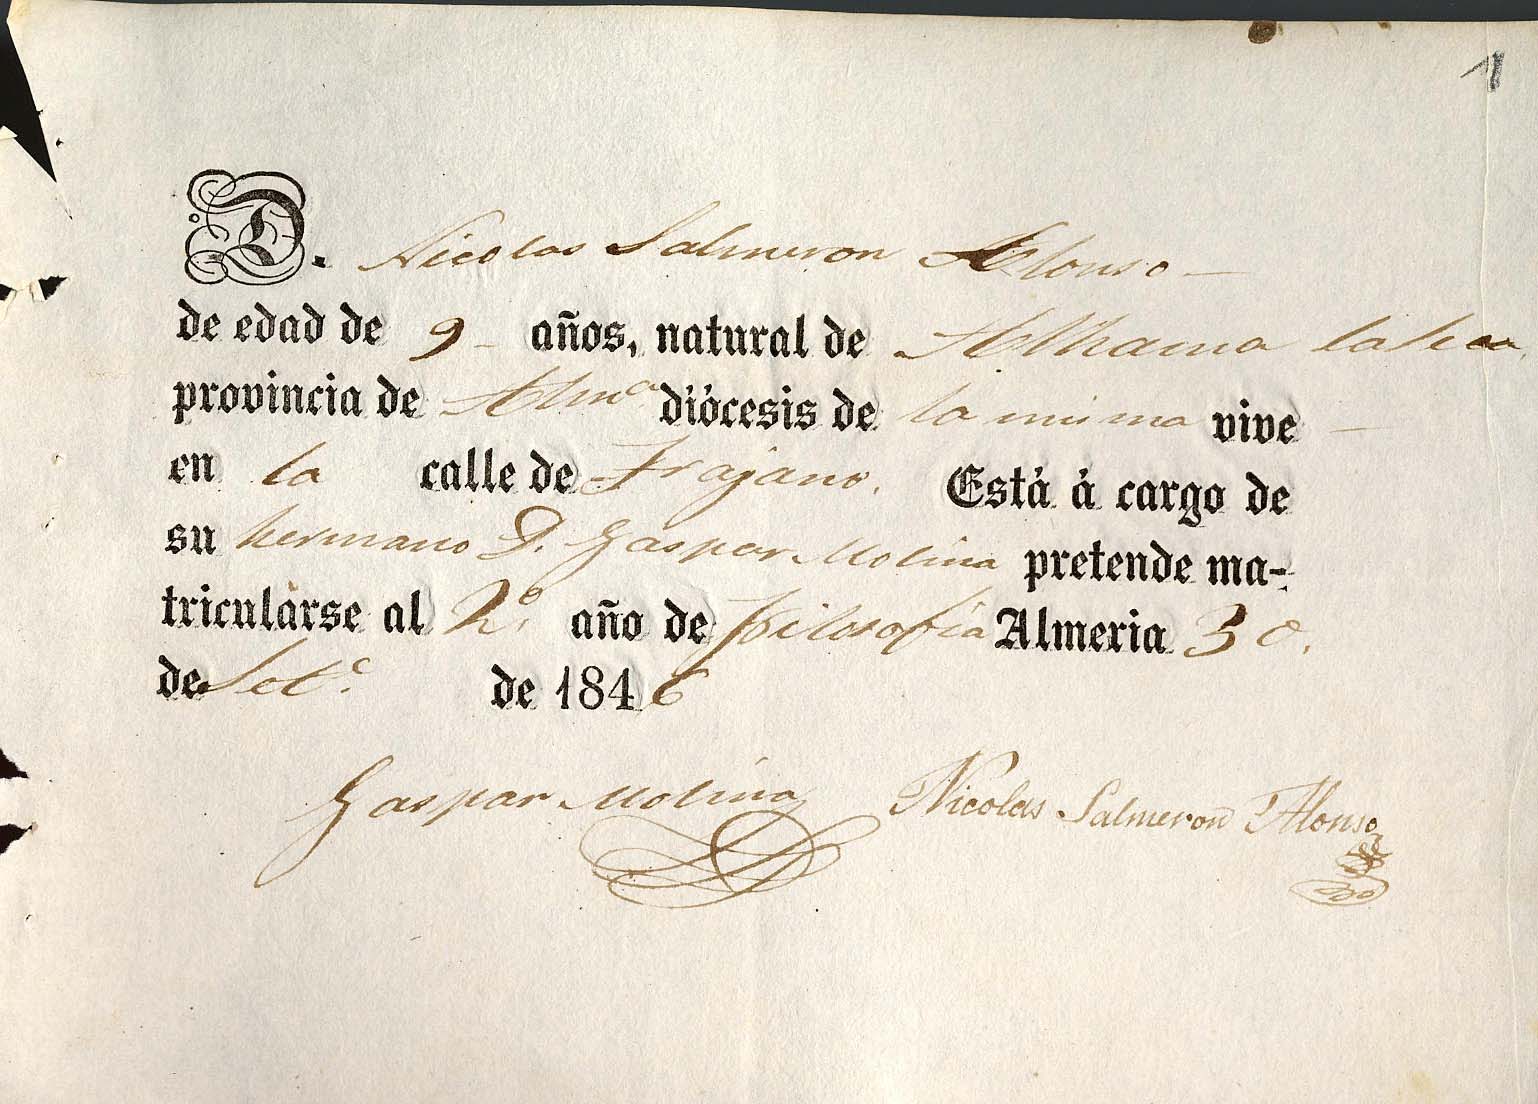 1
D. Nicolas Salmeron Alonso
de edad de 9 años, natural de Alhama la Seca
provincia de Alm.ª diócesis de la misma vive
en la calle de Trajano. Está á cargo de
su hermano D. Gaspar Molina pretende ma-
tricularse al 2.º año de filosofia Almeria 30.
de Set.e de 1846
Gaspar Molina Nicolas Salmeron Alonso